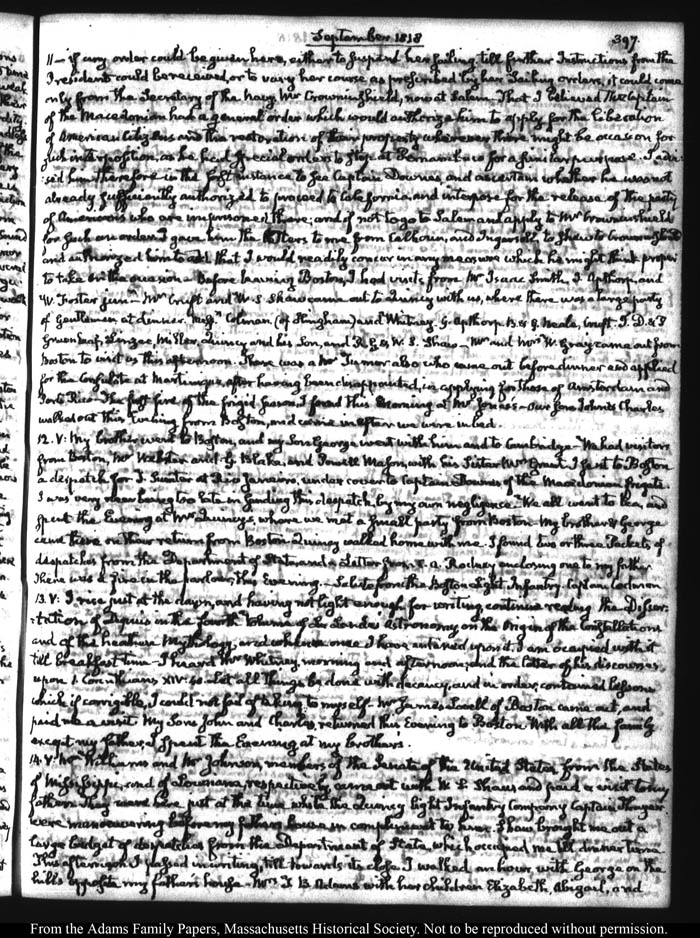 September 1818
397.
11— if any order could be given here, either to suspend her sailing till further Instructions from the
President could be received, or to vary her course as prescribed by her Sailing orders, it could come
only from the Secretary of the Navy Mr Crowninshield, now at Salem. That I believed the Captain
of the Macedonian had a general order which would authorize him to apply for the liberation
of American Citizens and the restoration of their property wherever there might be occasion for
such interposition, as he had special orders to stop at Pernambuco for a similar purpose. I advi-
sed him therefore in the first instance to see Captain Downes, and ascertain whether he was not
already sufficiently authorized to proceed to California and interpose for the release of the party
of Americans who are imprisoned there; and if not to go to Salem and apply to Mr Crowninshield
for such an order. I gave him the letters to me from Calhoun, and Ingersoll, to shew to Crowninshield
and authorized him to add that I would readily concur in any measure which he might think proper
to take on the occasion. Before leaving Boston, I had visits from Mr Isaac Smith, J. Apthorp, and
W. Foster junr. Mr Cruft and W. S. Shaw came out to Quincy with us, where there was a large party
of Gentlemen at dinner. Messrs Colman (of Hingham) and Whitney. G. Apthorp. B. & J. Neale, Cruft. J. D. & T
Greenleaf, Miller, Quincy and his Son, and W. S. Shaw. Mr and Mrs W. Gray came out from
Boston to visit us this afternoon. There was a Mr Turner also who came out before dinner and applied
for the Consulate at Martinique, after having been disappointed, in applying for those of Amsterdam and
Porto Rico. The first fire of the frigid season, I found this morning at Mr Jones's. Our sons John & Charles
walked out this Evening from Boston, and came in after we were in bed.
12. V: My brother went to Boston, and my Son George went with him and to Cambridge. We had visitors
from Boston, Mr Webster and G. Blake, and Powell Mason, with his Sister Mrs. I sent to Boston
a despatch for T. Sumter at Rio Janeiro, under cover to Captain Downes of the Macedonian frigate
I was very near being too late in sending this despatch, by my own negligence. We all went to tea, and
spent the Evening at Mr Quincy's, where we met a small party from Boston. My brother & George
came there on their return from Boston. Quincy walked home with me. I found two or three Packets of
despatches from the Department of State, and a Letter from C. A. Rodney enclosing one to my father
There was a fire in the parlour, this Evening. Salute from the Boston Light Infantry. Captain
13. V: I rise just at the dawn, and having not light enough for writing, continue reading the Disser-
tation of Dupuis in the fourth Volume of La Lande's Astronomy on the Origin of the Constellations
and of the heathen Mythology, and when once I have entered upon it I am occupied with it
till breakfast time. I heard Mr Whitney, morning and afternoon; and the latter of his discourses
upon 1. Corinthians XIV. 40. Let all things be done with decency, and in order, contained lessons
which if corrigible, I could not fail of taking to myself. Mr James Lovell of Boston came out, and
paid me a visit. My Sons John and Charles, returned this Evening to Boston. With all the family
except my father, I spent the Evening at my brothers.
14. V: Mr Williams and Mr Johnson, members of the Senate of the United States from the States
of Mississippi, and of Louisiana, respectively, came out with W. S. Shaw and paid a visit to my
father. They were here just at the time while the Quincy Light Infantry Company Captain Thayer
were manoeuvering before my father's house in compliment to him. Shaw brought me out a
large budget of despatches from the Department of State, which occupied me till dinner time.
This afternoon I passed in writing, till towards its close. I walked an hour with George on the
hills opposite my father's house. Mrs T. B. Adams with her children Elizabeth, Abigail, and
From the Adams Family Papers, Massachusetts Historical Society. Not to be reproduced without permission.